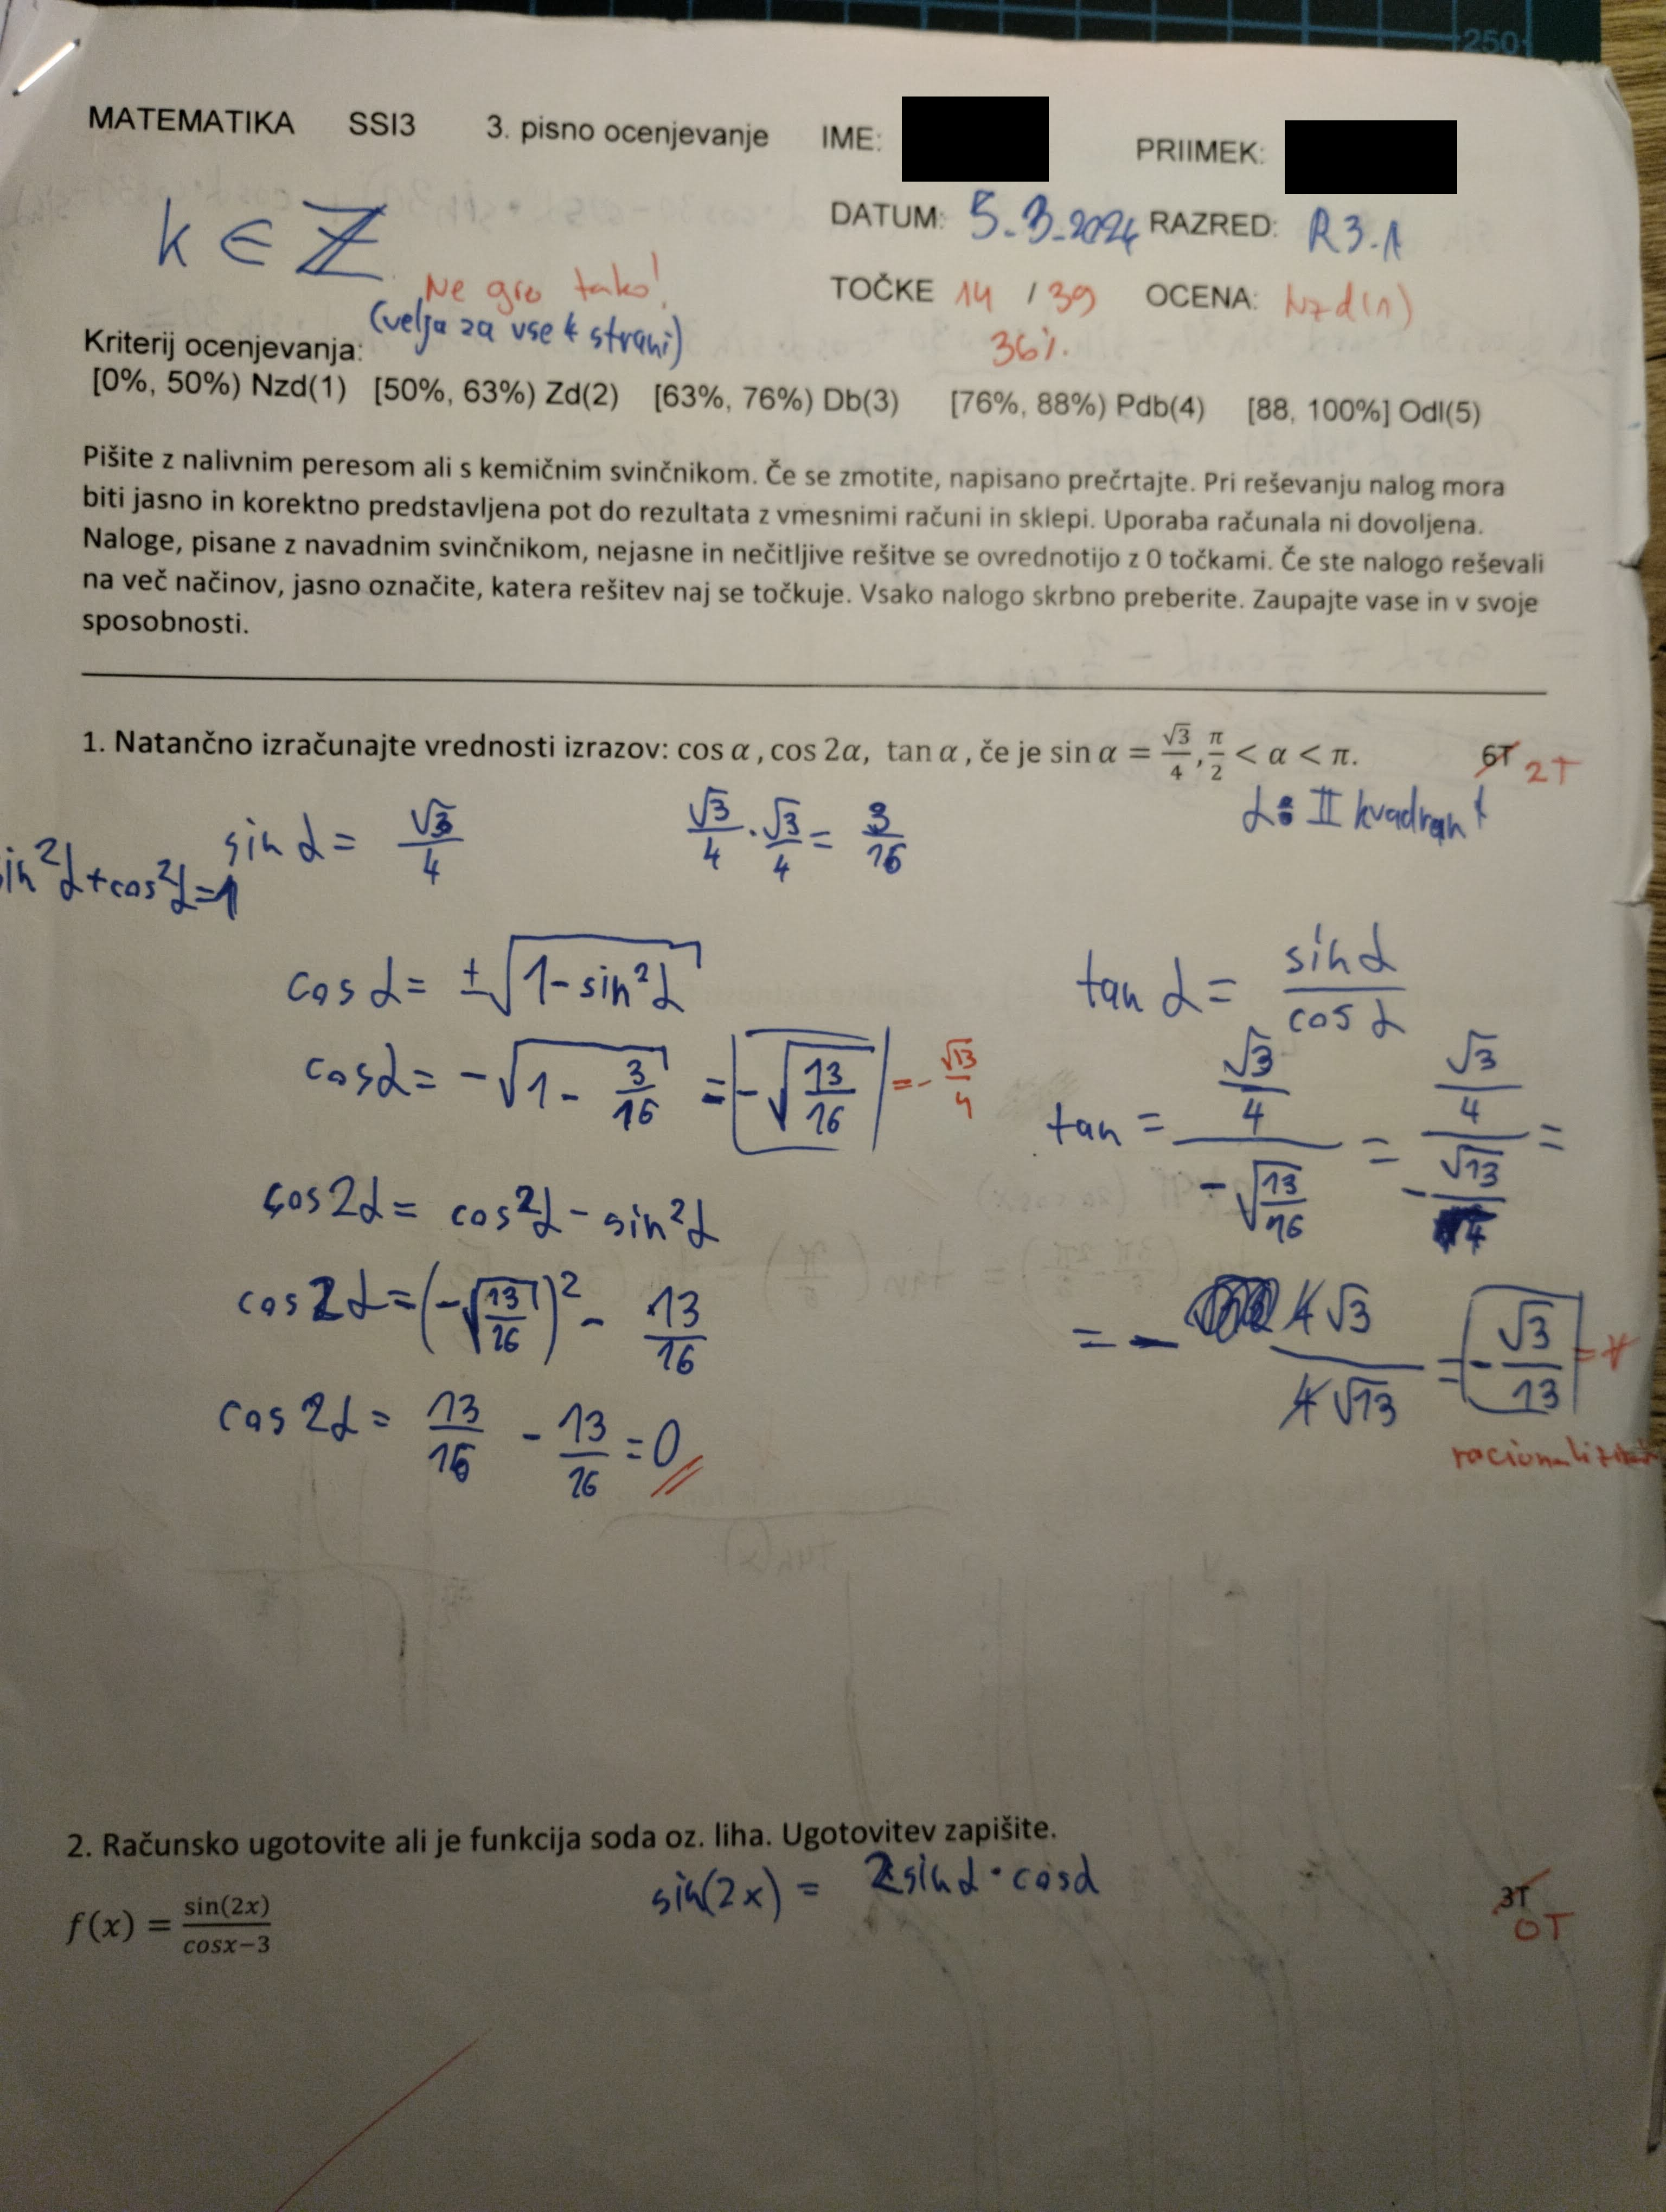 250
MATEMATIKA SSI3 3. pisno ocenjevanje IME: PRIIMEK:
k ∈ ℤ
DATUM: 5.3.2024 RAZRED: R3.1
Ne gre tako!
(velja za vse 4 strani)
TOČKE 14 / 39 OCENA: Nzd(1)
36%
Kriterij ocenjevanja:
[0%, 50%) Nzd(1) [50%, 63%) Zd(2) [63%, 76%) Db(3) [76%, 88%) Pdb(4) [88, 100%] Odl(5)
Pišite z nalivnim peresom ali s kemičnim svinčnikom. Če se zmotite, napisano prečrtajte. Pri reševanju nalog mora
biti jasno in korektno predstavljena pot do rezultata z vmesnimi računi in sklepi. Uporaba računala ni dovoljena.
Naloge, pisane z navadnim svinčnikom, nejasne in nečitljive rešitve se ovrednotijo z 0 točkami. Če ste nalogo reševali
na več načinov, jasno označite, katera rešitev naj se točkuje. Vsako nalogo skrbno preberite. Zaupajte vase in v svoje
sposobnosti.
1. Natančno izračunajte vrednosti izrazov: cos α, cos 2α, tan α, če je sin α = √3/4, π/2 < α < π. 6T 2T
α: II kvadrant
sin α = √3/4
√3/4 · √3/4 = 3/16
in²α + cos²α = 1
cos α = ±√(1 - sin²α)
cos α = -√(1 - 3/16) = -√(13/16) = -√13/4
cos 2α = cos²α - sin²α
cos 2α = (-√(13/16))² - 13/16
cos 2α = 13/16 - 13/16 = 0
tan α = sin α/cos α
tan = (√3/4)/(-√(13/16)) = (√3/4)/(-√13/4) =
= - 4√3/4√13 = -√3/13 =
2. Računsko ugotovite ali je funkcija soda oz. liha. Ugotovitev zapišite.
sin(2x) = 2 sin α · cos α
3T 0T
f(x) = sin(2x)/(cosx−3)